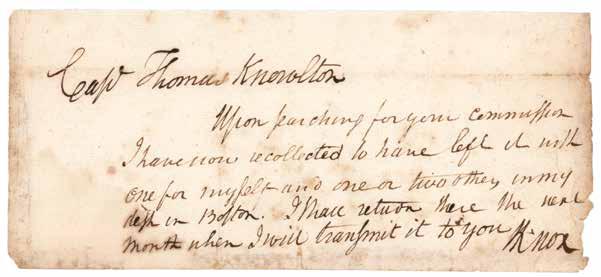 Capt Thomas Knowlton
Upon searching for your commission
I have now recollected to have left it with
one for myself and one or two others in my
desk in Boston. I shall return there the next
month when I will transmit it to you HKnox